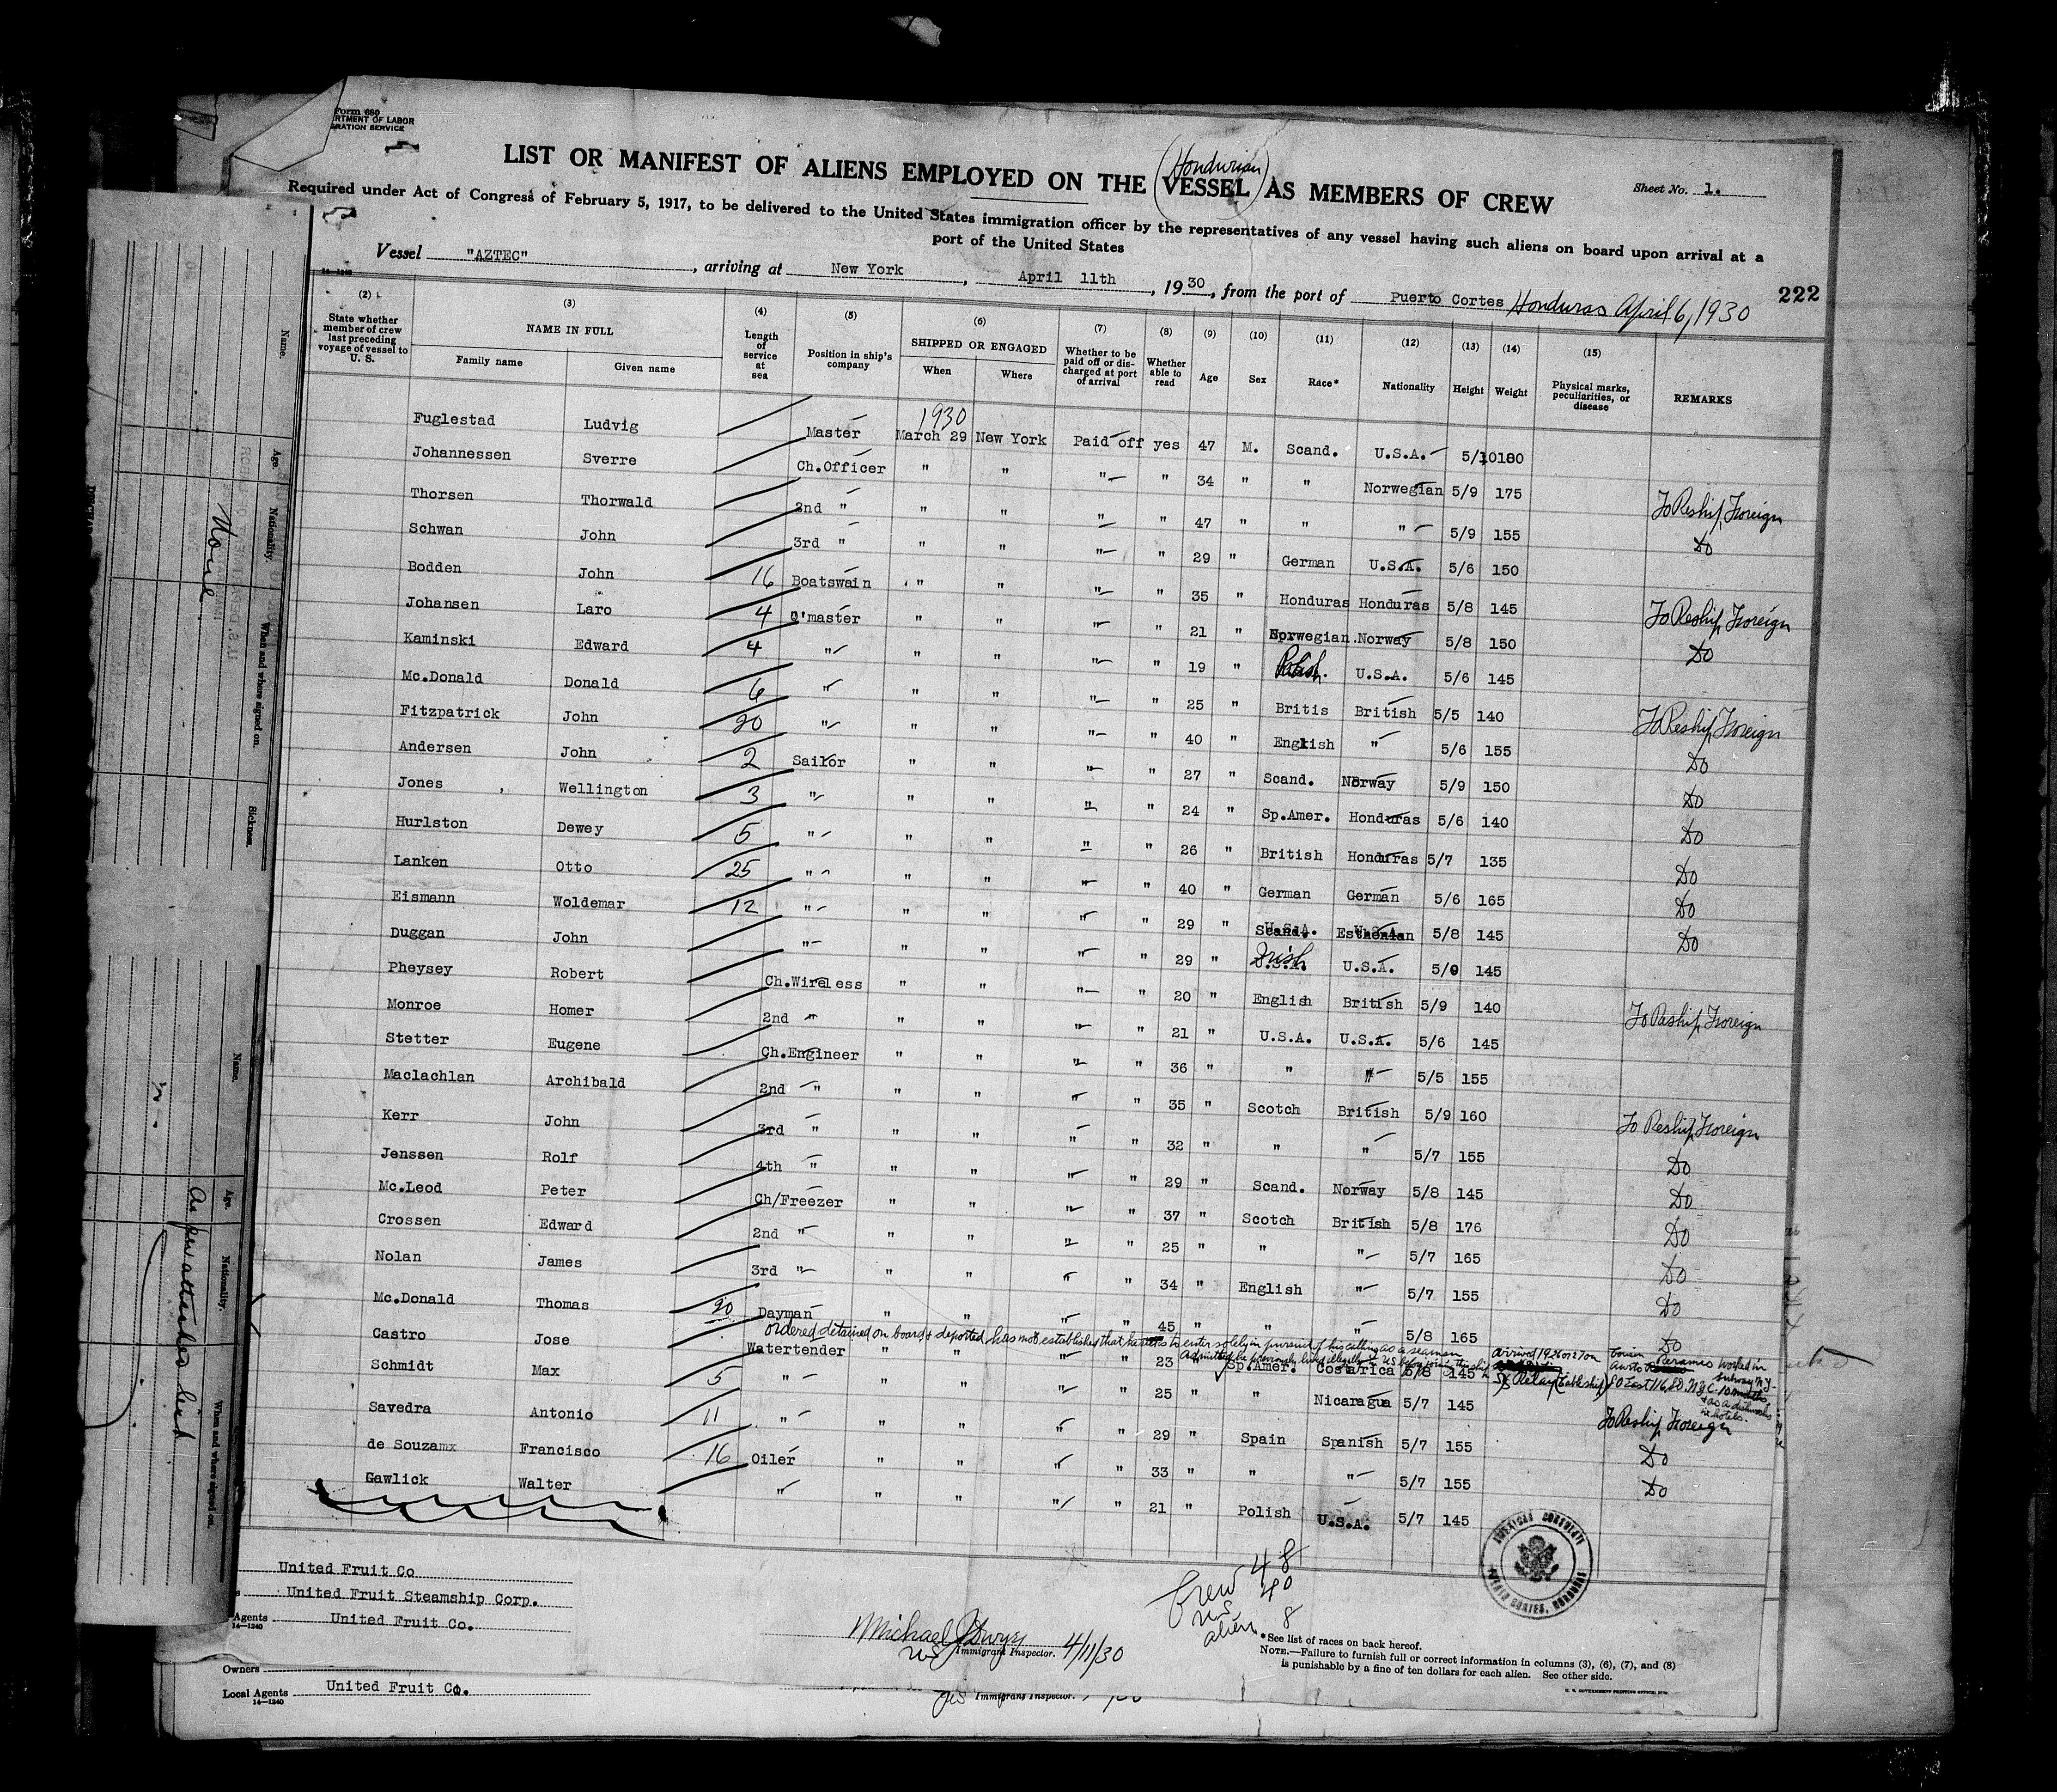 Form 680
RTMENT OF LABOR
RATION SERVICE
LIST OR MANIFEST OF ALIENS EMPLOYED ON THE (Hondurian) VESSEL AS MEMBERS OF CREW
Sheet No. 1.
Required under Act of Congress of February 5, 1917, to be delivered to the United States immigration officer by the representatives of any vessel having such aliens on board upon arrival at a
port of the United States
Vessel "AZTEC", arriving at New York, April 11th, 1930, from the port of Puerto Cortes Honduras April 6, 1930
222
14-1240
(2) (3) (4) (5) (6) (7) (8) (9) (10) (11) (12) (13) (14) (15)
State whether member of crew last preceding voyage of vessel to U. S. NAME IN FULL Family name Given name Length of service at sea Position in ship's company SHIPPED OR ENGAGED When Where Whether to be paid off or discharged at port of arrival Whether able to read Age Sex Race* Nationality Height Weight Physical marks, peculiarities, or disease REMARKS
1930
Fuglestad Ludvig Master March 29 New York Paid off yes 47 M. Scand. U.S.A. 5/10 180
Johannessen Sverre Ch.Officer " " " " 34 " " Norwegian 5/9 175 To Reship Foreign
Thorsen Thorwald 2nd " " " " " 47 " " " 5/9 155 Do
Schwan John 3rd " " " " " 29 " German U.S.A. 5/6 150
Bodden John 16 Boatswain " " " " 35 " Honduras Honduras 5/8 145 To Reship Foreign
Johansen Laro 4 Q'master " " " " 21 " Norwegian. Norway 5/8 150 Do
Kaminski Edward 4 " " " " " 19 " Polish. U.S.A. 5/6 145
Mc.Donald Donald 6 " " " " " 25 " Britis British 5/5 140 To Reship Foreign
Fitzpatrick John 20 " " " " " 40 " English " 5/6 155 Do
Andersen John 2 Sailor " " " " 27 " Scand. Norway 5/9 150 Do
Jones Wellington 3 " " " " " 24 " Sp.Amer. Honduras 5/6 140 Do
Hurlston Dewey 5 " " " " " 26 " British Honduras 5/7 135 Do
Lanken Otto 25 " " " " " 40 " German German 5/6 165 Do
Eismann Woldemar 12 " " " " " 29 " Scand. Esthonian 5/8 145 Do
Duggan John " " " " " 29 " Irish U.S.A. U.S.A. 5/0 145
Pheysey Robert Ch.Wireless " " " " 20 " English British 5/9 140 To Reship Foreign
Monroe Homer 2nd " " " " " 21 " U.S.A. U.S.A. 5/6 145
Stetter Eugene Ch.Engineer " " " " 36 " " " 5/5 155
Maclachlan Archibald 2nd " " " " " 35 " Scotch British 5/9 160 To Reship Foreign
Kerr John 3rd " " " " " 32 " " " 5/7 155 Do
Jenssen Rolf 4th " " " " " 29 " Scand. Norway 5/8 145 Do
Mc.Leod Peter Ch/Freezer " " " " 37 " Scotch British 5/8 176 Do
Crossen Edward 2nd " " " " " 25 " " " 5/7 165 Do
Nolan James 3rd " " " " " 34 " English " 5/7 155 Do
Mc.Donald Thomas 20 Dayman " " " " 45 " " " 5/8 165 Do
ordered detained on board & deported, has not established that he seeks to enter solely in pursuit of his calling as a seaman
Castro Jose Watertender " " " " 23 " Sp.Amer. Costa rica 5/8 145
Schmidt Max 5 " " " " " 25 " " Nicaragua 5/7 145 To Reship Foreign
Savedra Antonio 11 " " " " " 29 " Spain Spanish 5/7 155 Do
de Souzamx Francisco 16 Oiler " " " " 33 " " " 5/7 155 Do
Gawlick Walter " " " " " 21 " Polish U.S.A. 5/7 145
AMERICAN CONSULATE
PUERTO CORTES, HONDURAS
United Fruit Co
United Fruit Steamship Corp.
Agents United Fruit Co.
14-1240
Crew 48
40
U.S. 8
aliens
Immigrant Inspector. 4/11/30
*See list of races on back hereof.
NOTE.—Failure to furnish full or correct information in columns (3), (6), (7), and (8)
is punishable by a fine of ten dollars for each alien. See other side.
U. S. GOVERNMENT PRINTING OFFICE
Owners
Local Agents United Fruit Co.
14-1240
Immigrant Inspector.
Name. Age. Nationality. When and where signed on. Sickness.
None
Name. Age. Nationality. When and where signed on.
As per attached list